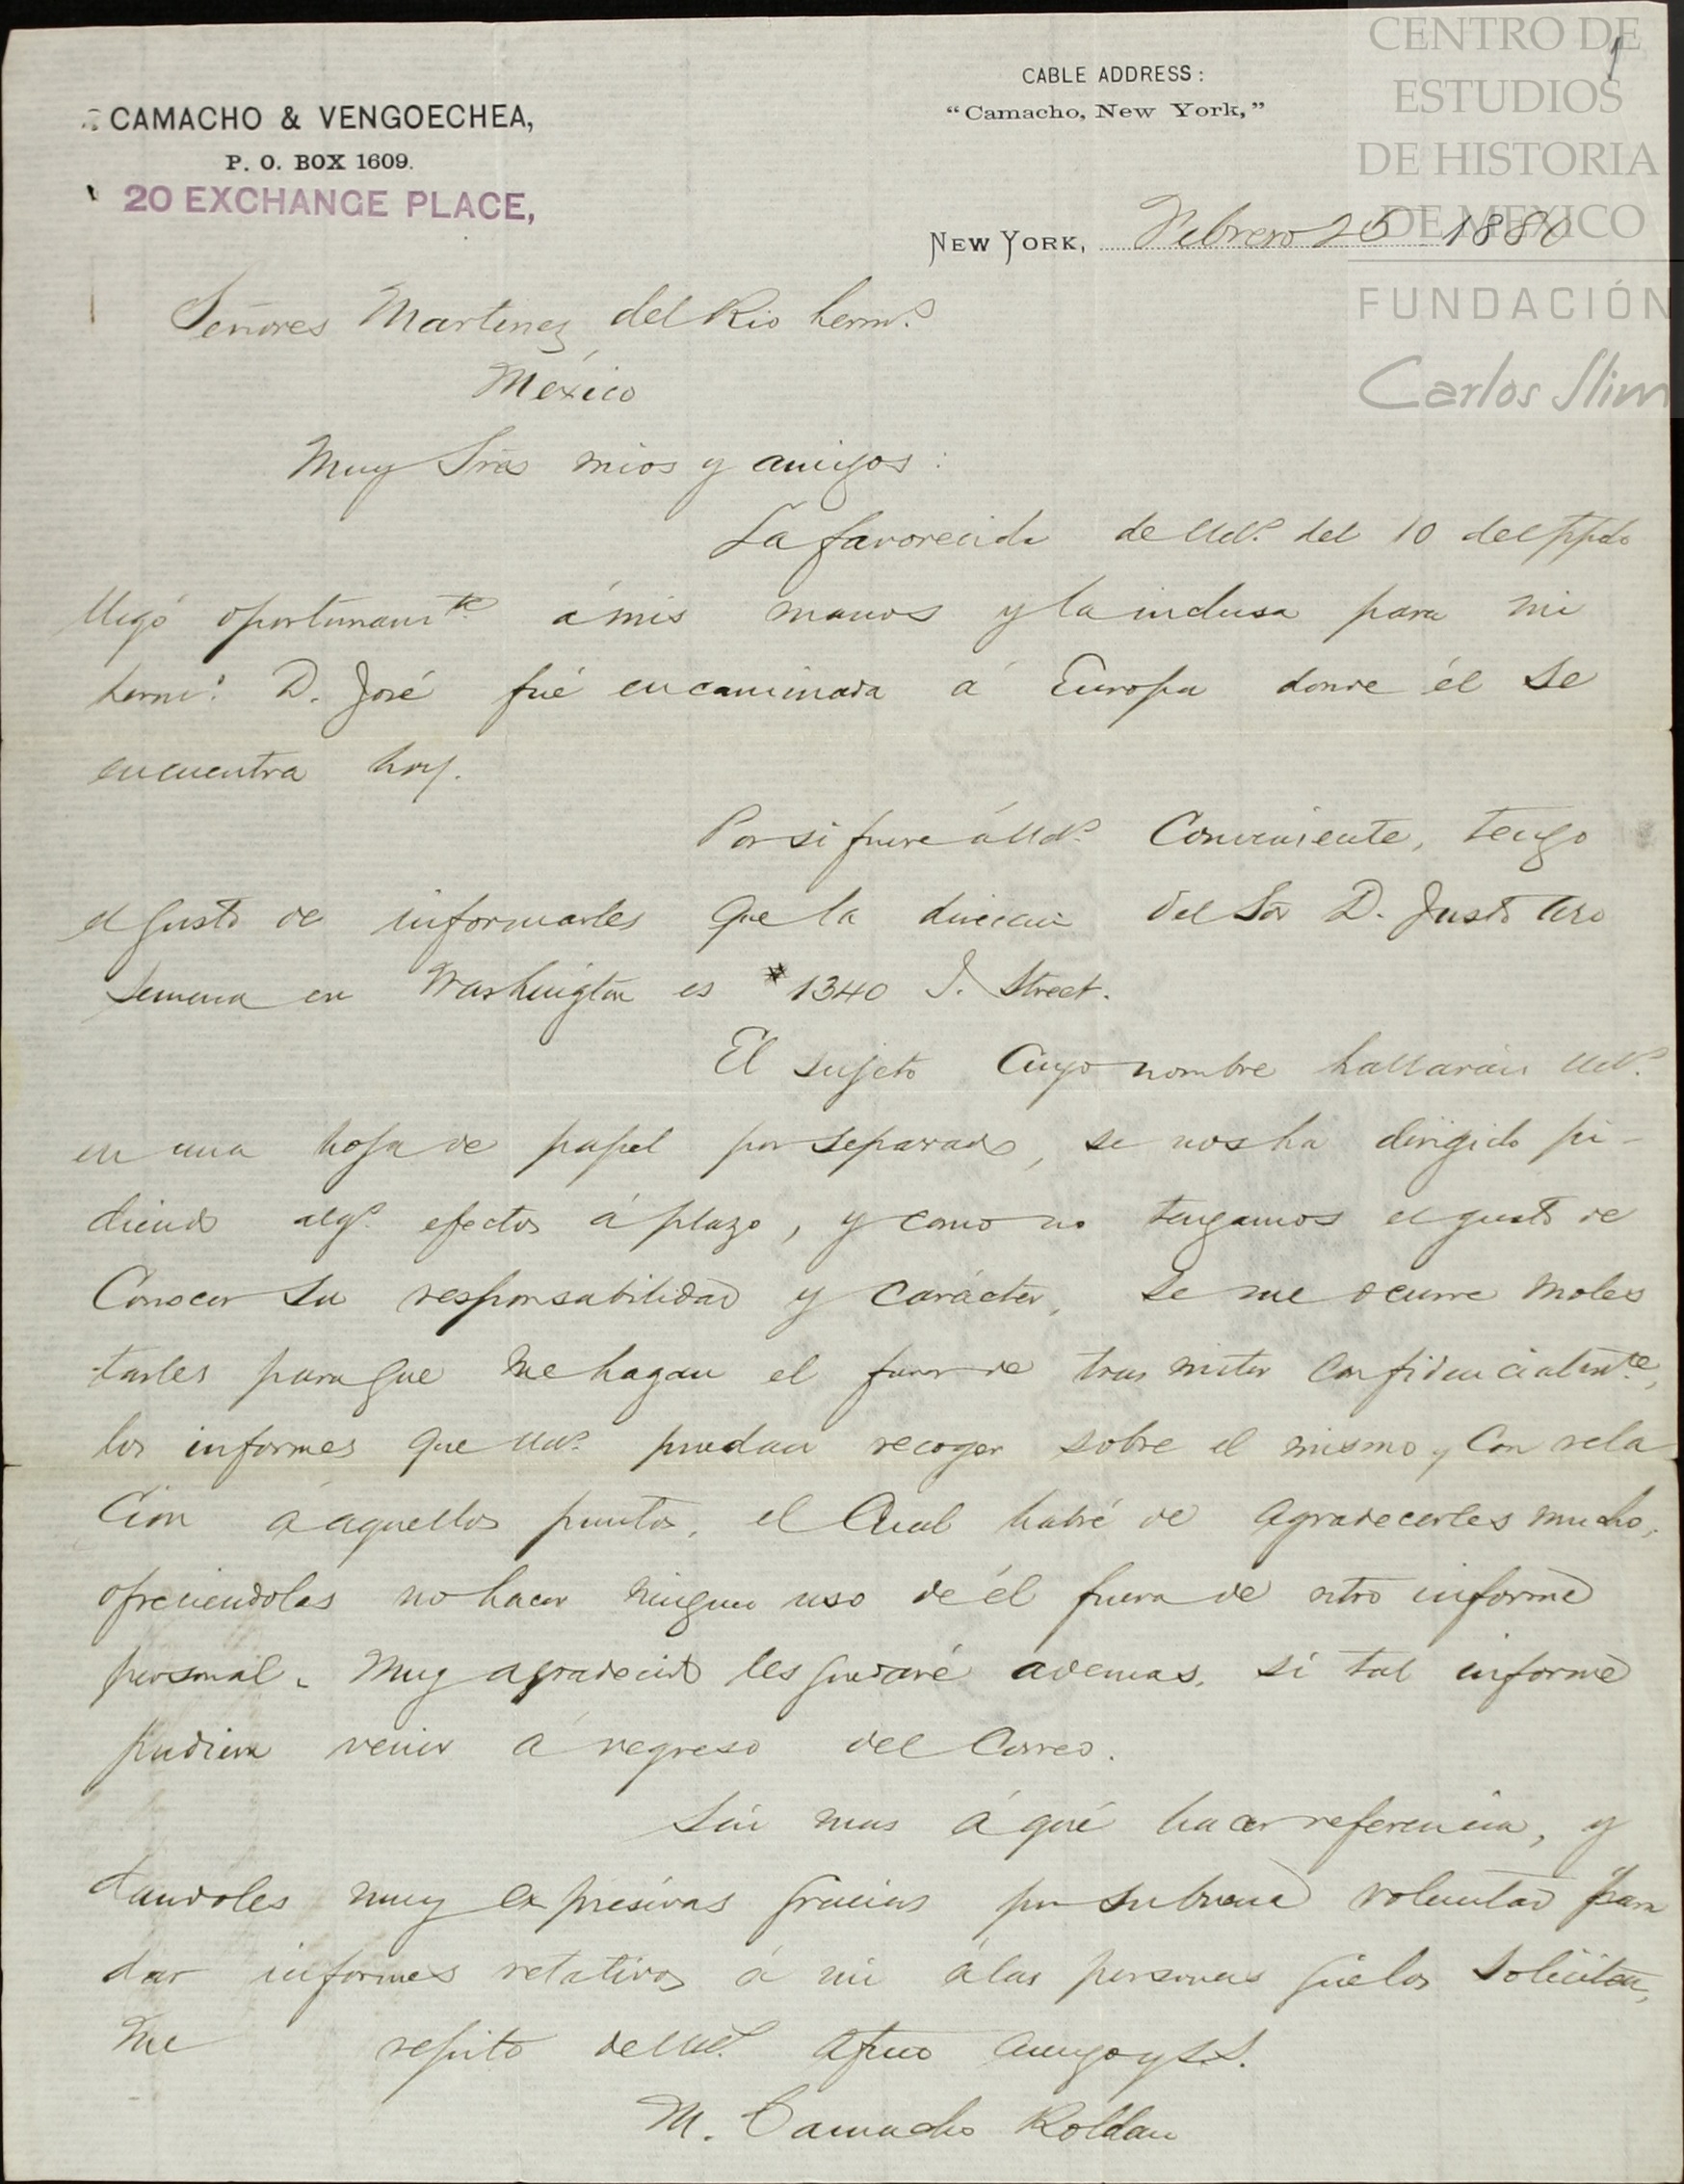 CENTRO DE
ESTUDIOS
DE HISTORIA
DE MEXICO
FUNDACIÓN
Carlos Slim
1
CAMACHO & VENGOECHEA,
P. O. BOX 1609.
20 EXCHANGE PLACE,
CABLE ADDRESS:
"Camacho, New York,"
NEW YORK, Febrero 26 1880
Señores Martinez del Rio herms
México
Muy Sres mios y amigos:
La favorecida de Uds. del 10 del ppdo
llegó oportunamte á mis manos y la inclusa para mi
hermo. D. José fué encaminada á Europa donde él se
encuentra hoy.
Por si fuere á Uds. Conveniente, tengo
el gusto de informarles que la direccion del Sor D. Justo Aro
semena en Washington es # 1340 I. Street.
El sujeto Cuyo nombre hallarán Uds.
en una hoja de papel por separado, se nos ha dirigido pi-
diendo algs. efectos á plazo, y como no tengamos el gusto de
Conocer su responsabilidad y carácter, se me ocurre moles
tarles para que me hagan el favor de trasmitir Confidencialmte,
los informes que Uds. puedan recoger sobre el mismo y Con rela
cion á aquellos puntos, el Cual habré de agradecerles mucho,
ofreciendoles no hacer ningun uso de él fuera de ntro informe
personal. Muy agradecido les quedaré ademas, si tal informe
pudiera venir á regreso del Correo.
Sin mas á qué hacer referencia, y
dandoles muy expresivas gracias por su buena voluntad para
dar informes relativos á mi á las personas que los soliciten,
me repito de Uds. afmo amigo y S.S.
M. Camacho Roldan